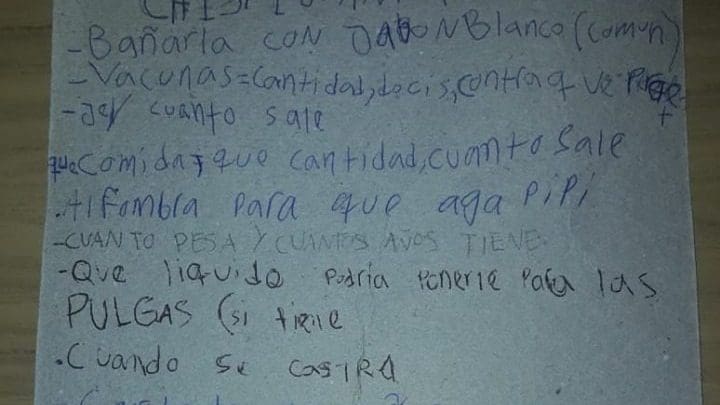 -Bañarla CON JABON Blanco (comun)
-Vacunas=Cantidad, docis, contra que
-Ver cuanto sale
que comida y que cantidad, cuanto sale
.Alfombra para que aga pipi
-CUANTO PESA Y CUANTOS AÑOS TIENE.
-Que liquido Podria Ponerle Para las
PULGAS (si tiene
.Cuando se CASTRA